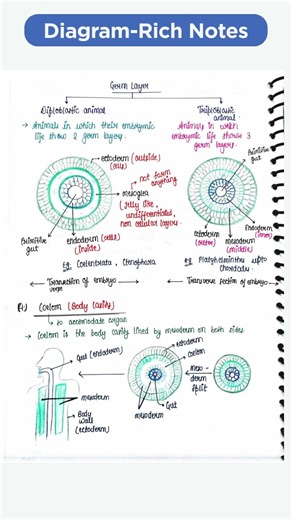 Diagram-Rich Notes
Germ Layer
Diploblastic animal
→ Animals in which their embryonic
life show 2 germ layers.
ectoderm (outside)
(cells)
mesoglea
→ not form
anything
(Jelly like,
undifferentiated,
non cellular layer).
Primitive
gut
endoderm (cells)
(inside)
eg. Coelenterata, Ctenophora
Triploblastic
animal
Animals in which
embryonic life shows 3
germ layers.
Primitive
gut
ectoderm
(outer)
mesoderm
(middle)
Endoderm
(inner)
eg. Platyhelminthes upto
Chordata.
Transverse section of embryo
Coelom (Body Cavity)
to accomodate organ
→ Coelom is the body cavity lined by mesoderm on both sides.
Gut (endoderm)
mesoderm
Body
wall
(ectoderm)
ectoderm
coelom
Gut
mesoderm
Meso-
derm
split